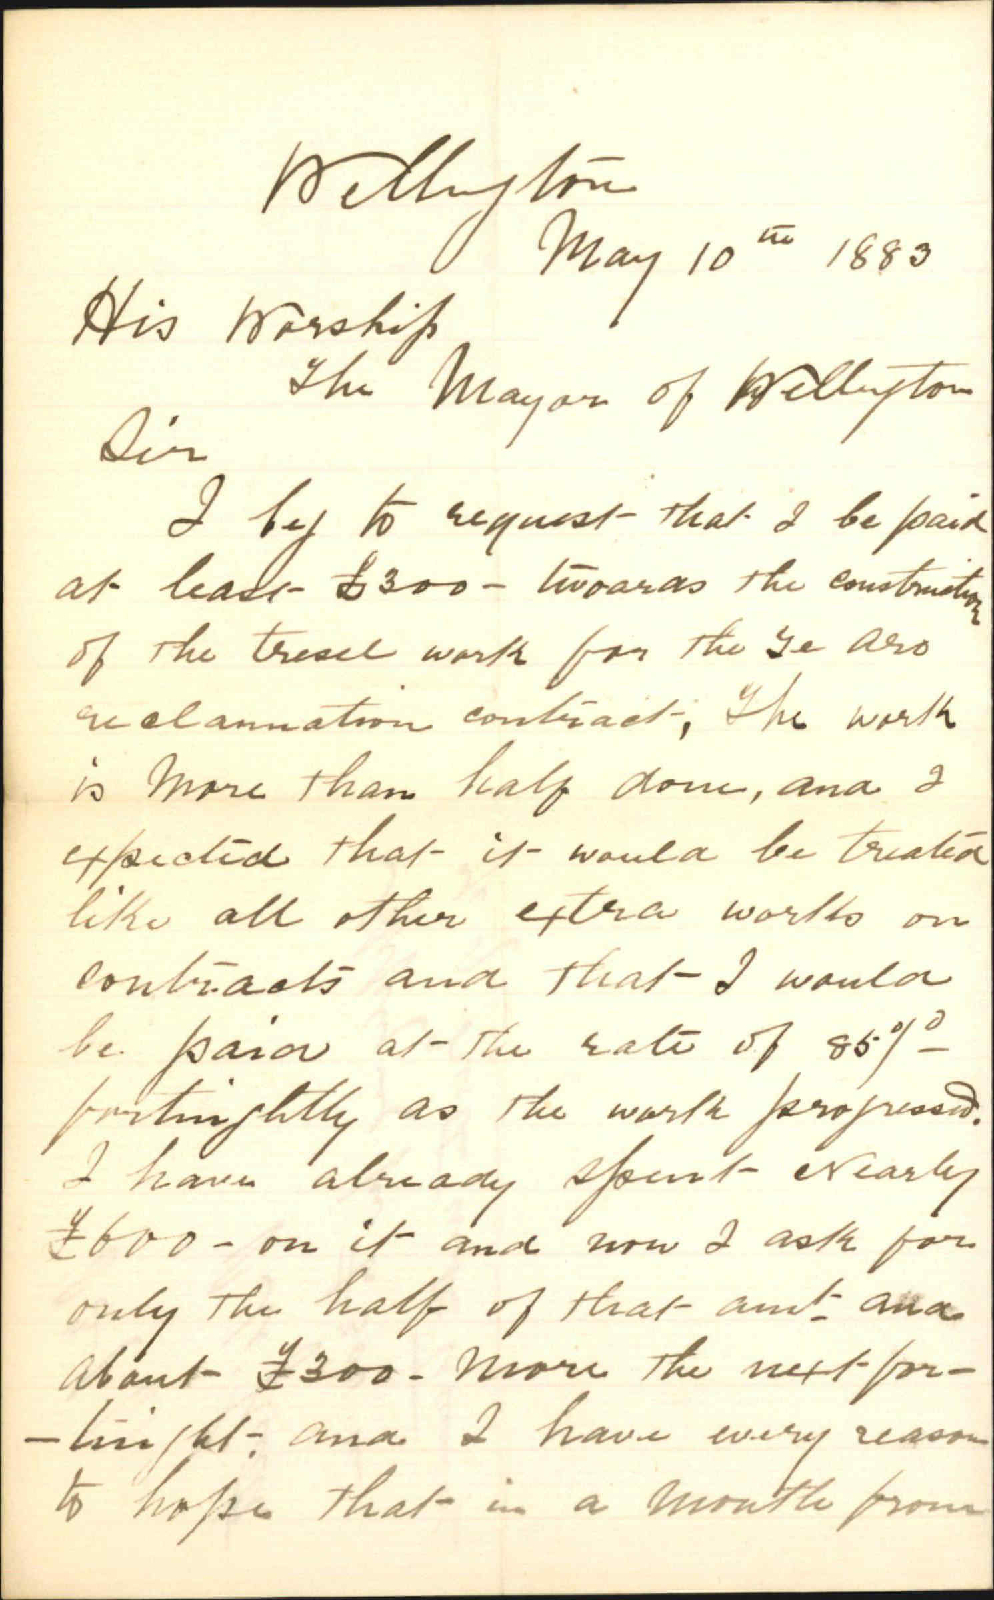 Wellington
May 10th 1883
His Worship
The Mayor of Wellington
Sir
I beg to request that I be paid
at least £300 - towards the construction
of the tresel work for the Te Aro
reclamation contract, The work
is More than half done, and I
expected that it would be treated
like all other extra works on
contracts and that I would
be paid at the rate of 85%
fortnightly as the work progressed.
I have already spent Nearly
£600 - on it and now I ask for
only the half of that amt. and
about £300 - More the next for-
-tnight. and I have every reason
to hope that in a Month from